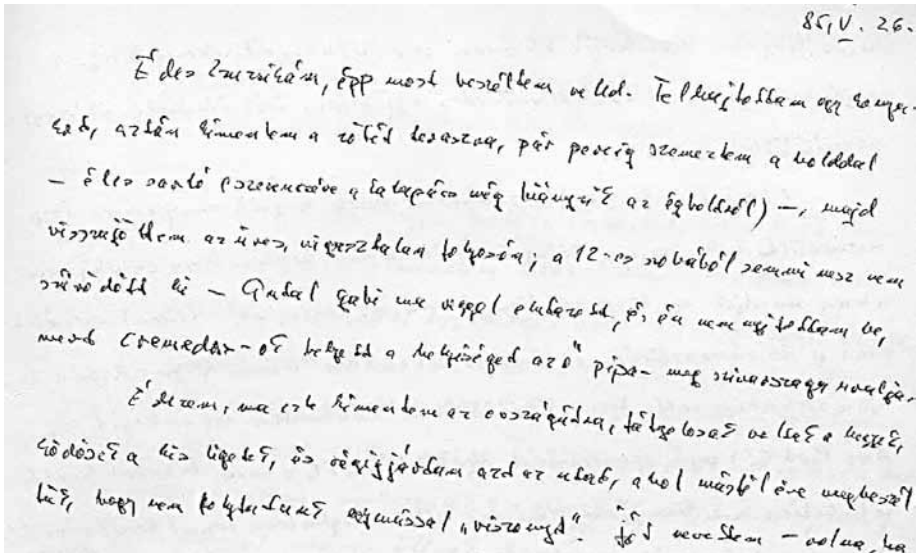 85, V. 26.
Édes Zsuzsikám, épp most beszéltem veled. Felhajtottam egy konya-
kot, aztán kimentem a sötét teraszra, pár percig szemeztem a holddal
– éles sarló (szerencsére a katapács még hiányzik az égboltról) –, majd
visszajöttem az üres, vigasztalan folyosón, a 12-es szobából semmi nesz nem
szűrődött ki – Antal Gabi ma reggel elutazott, és én nem nyitottam be,
mert Csemadok-os helyett a helyiséget az ő pipa- meg szivarszaga
Édesem, ma este kimentem az országútra, tátogtosak voltak a hegyek,
ködösek a kis ligetek, és végigjártam azt az utat, ahol másfél éve megbeszél-
tük, hogy nem folytatunk egymással „viszonyt". Jót nevettem – volna, ha